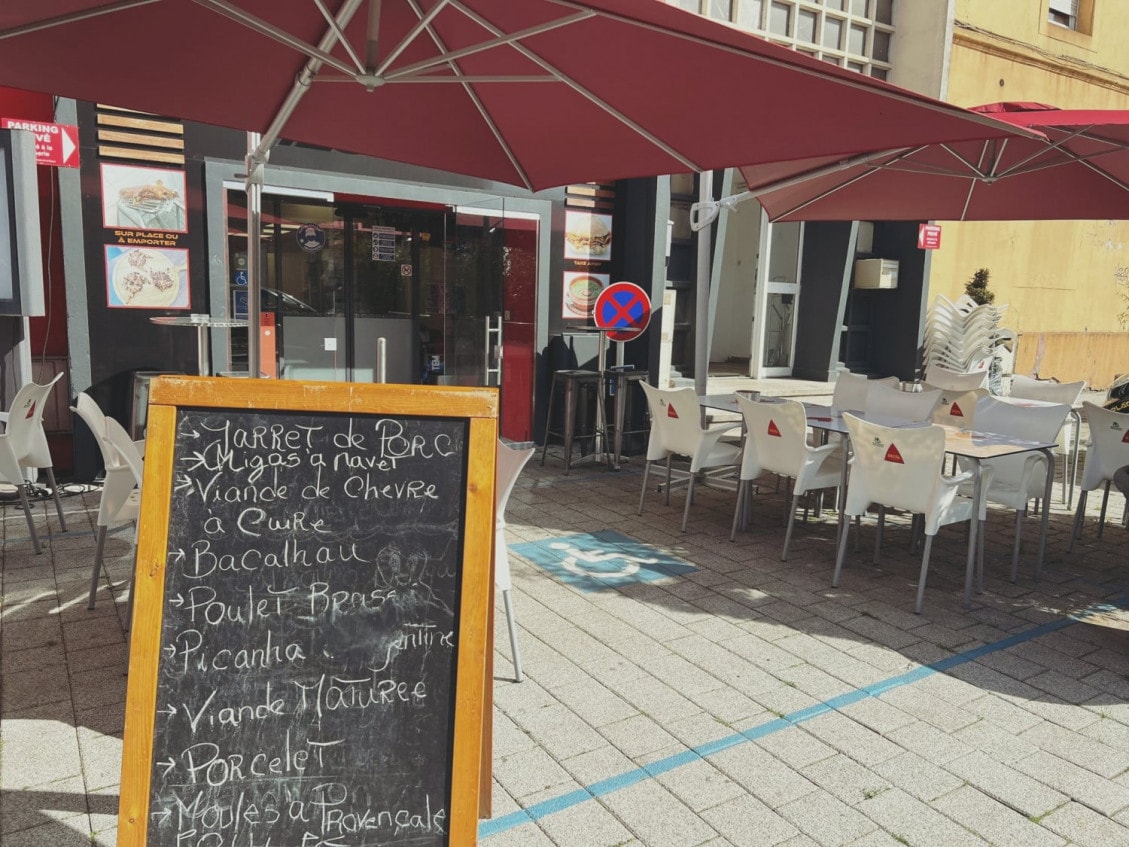 PARKING
SUR PLACE OU
À EMPORTER
→ JARRET de PORC
→ Migas a navet
→ Viande de Chevre
à Cuire
→ Bacalhau
→ Poulet Brase
→ Picanha
→ Viande MATUREE
→ PORCELET
→ Moules a Provençale